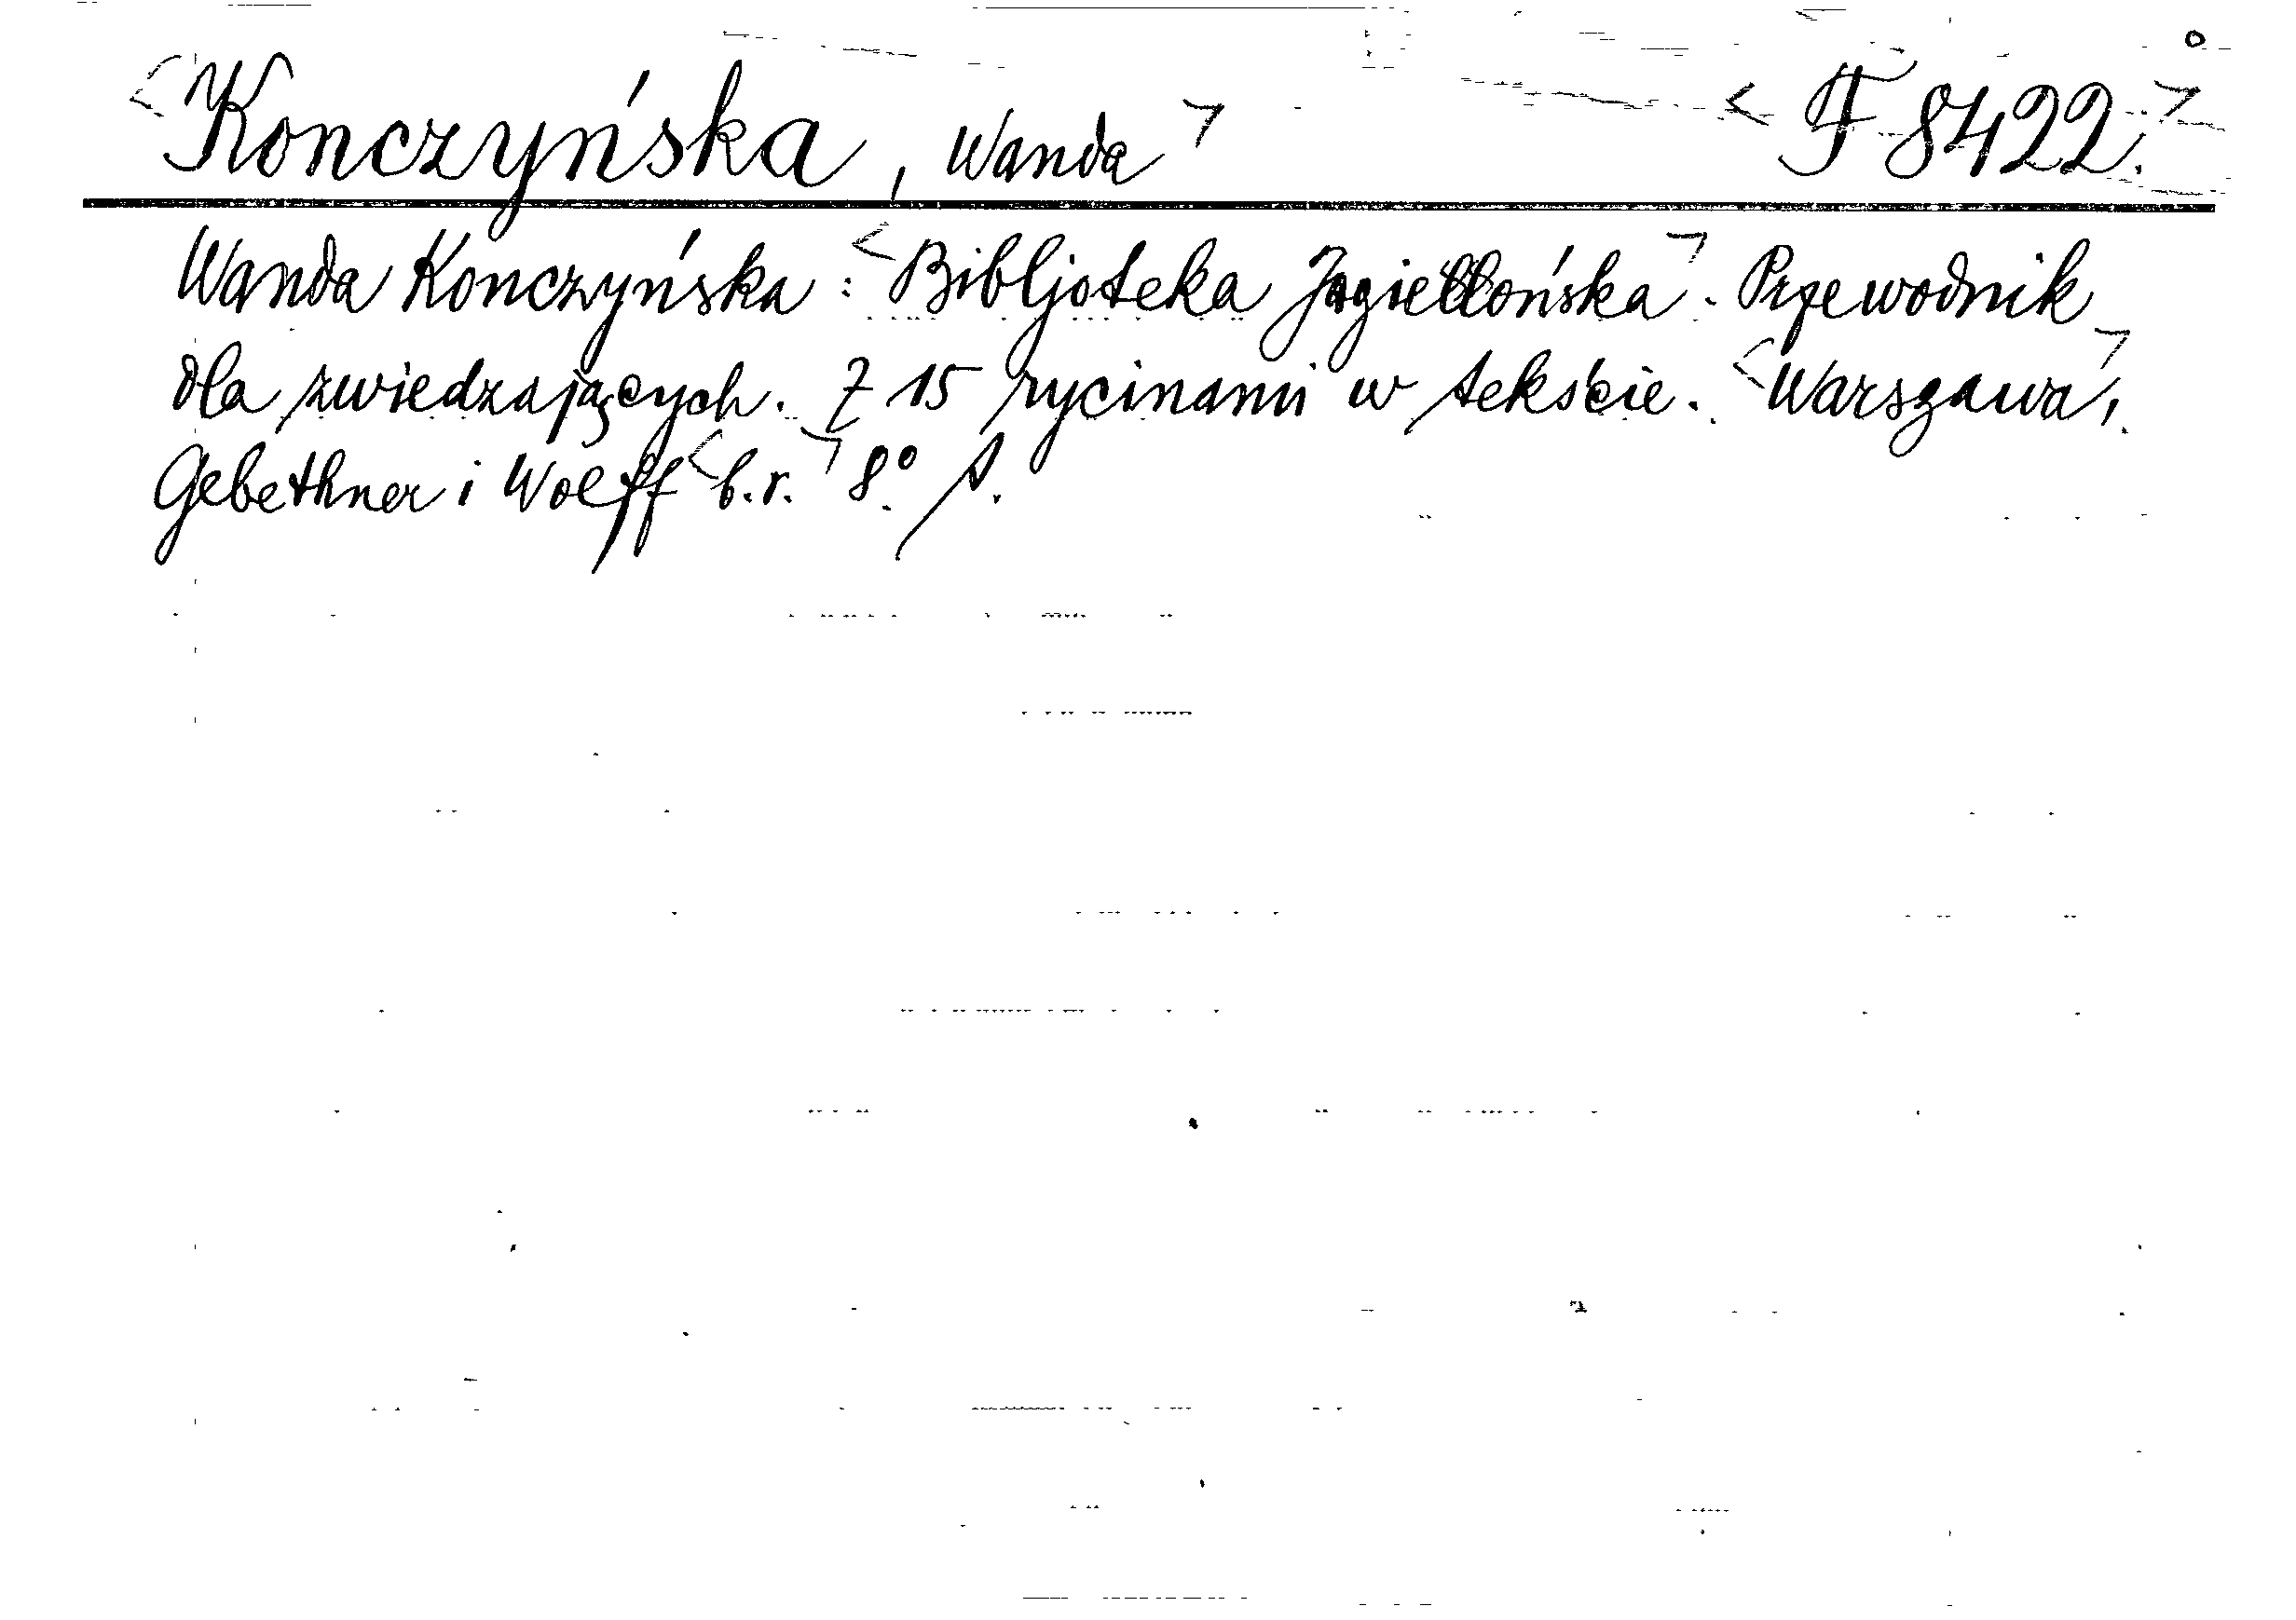 <Konczyńska, Wanda> <F 8422.>
Wanda Konczyńska: <Bibljoteka Jagiellońska>. Przewodnik
dla zwiedzających. Z 15 rycinami w tekście. <Warszawa>,
Gebethner i Wolff <b.r.> 8º. s.